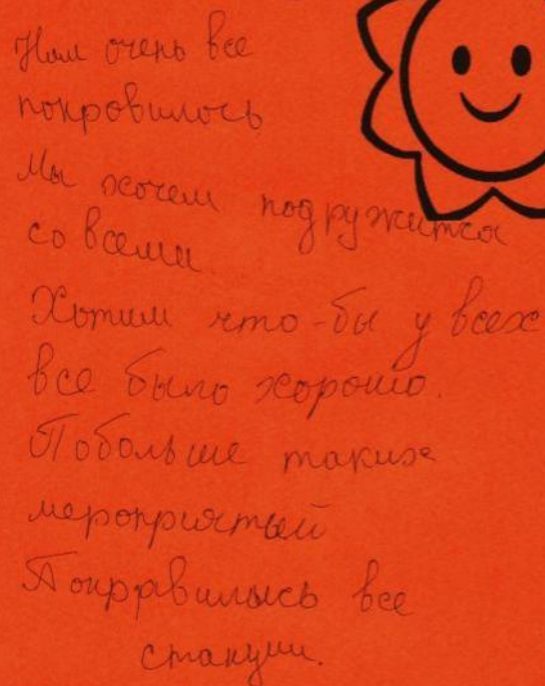 Нам очень все
понровилось
Мы хочем подружится
со всеми
Хотим что-бы у всех
все было хорошо.
Побольше таких
мероприятий
Понрравились все
станции.